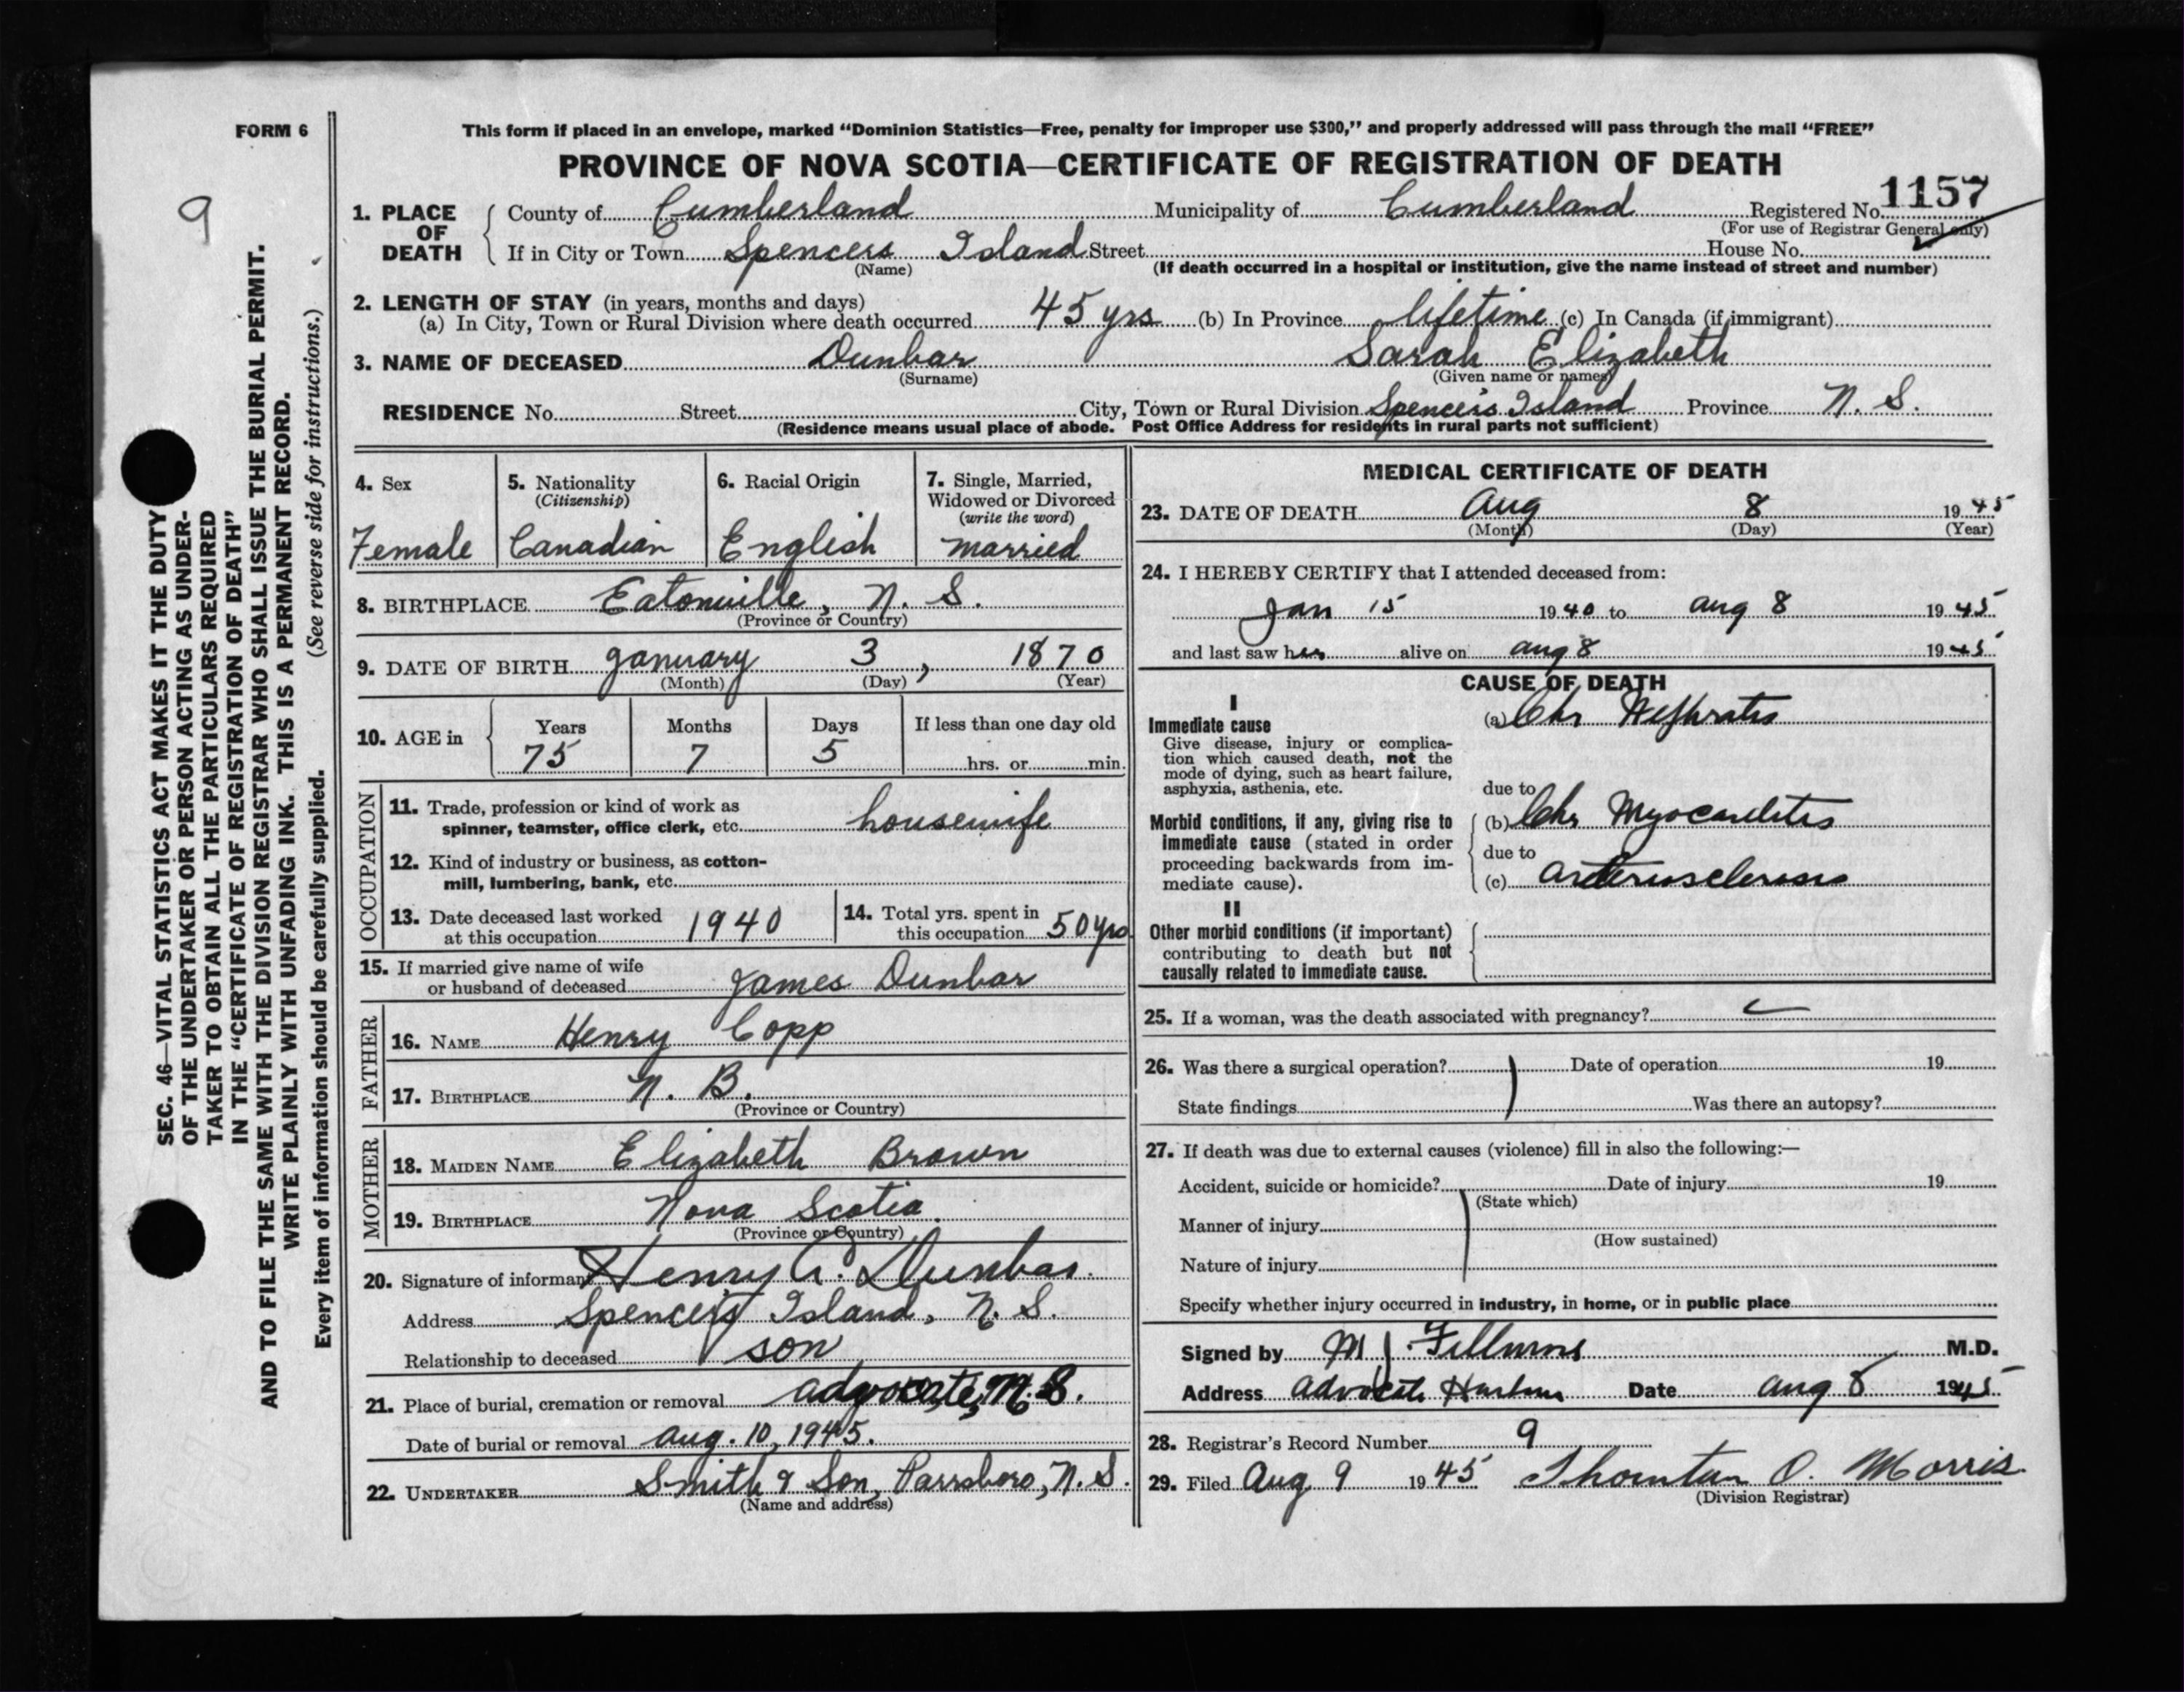 FORM 6
9
SEC. 46—VITAL STATISTICS ACT MAKES IT THE DUTY
OF THE UNDERTAKER OR PERSON ACTING AS UNDER-
TAKER TO OBTAIN ALL THE PARTICULARS REQUIRED
IN THE "CERTIFICATE OF REGISTRATION OF DEATH"
AND TO FILE THE SAME WITH THE DIVISION REGISTRAR WHO SHALL ISSUE THE BURIAL PERMIT.
WRITE PLAINLY WITH UNFADING INK. THIS IS A PERMANENT RECORD.
Every item of information should be carefully supplied. (See reverse side for instructions.)
This form if placed in an envelope, marked "Dominion Statistics—Free, penalty for improper use $300," and properly addressed will pass through the mail "FREE"
PROVINCE OF NOVA SCOTIA—CERTIFICATE OF REGISTRATION OF DEATH
1. PLACE OF DEATH
County of Cumberland Municipality of Cumberland Registered No. 1157
(For use of Registrar General only)
If in City or Town Spencers Island Street House No.
(Name) (If death occurred in a hospital or institution, give the name instead of street and number)
2. LENGTH OF STAY (in years, months and days)
(a) In City, Town or Rural Division where death occurred 45 yrs (b) In Province lifetime (c) In Canada (if immigrant)
3. NAME OF DECEASED Dunbar Sarah Elizabeth
(Surname) (Given name or names)
RESIDENCE No. Street City, Town or Rural Division Spencer's Island Province N. S.
(Residence means usual place of abode. Post Office Address for residents in rural parts not sufficient)
4. Sex
Female
5. Nationality
(Citizenship)
Canadian
6. Racial Origin
English
7. Single, Married,
Widowed or Divorced
(write the word)
married
8. BIRTHPLACE Eatonville, N. S.
(Province or Country)
9. DATE OF BIRTH January 3, 1870
(Month) (Day) (Year)
10. AGE in
Years Months Days If less than one day old
75 7 5 hrs. or min.
OCCUPATION
11. Trade, profession or kind of work as
spinner, teamster, office clerk, etc. housewife
12. Kind of industry or business, as cotton-
mill, lumbering, bank, etc.
13. Date deceased last worked
at this occupation 1940
14. Total yrs. spent in
this occupation 50 yrs
15. If married give name of wife
or husband of deceased James Dunbar
FATHER
16. NAME Henry Copp
17. BIRTHPLACE N. B.
(Province or Country)
MOTHER
18. MAIDEN NAME Elizabeth Brown
19. BIRTHPLACE Nova Scotia
(Province or Country)
20. Signature of informant Henry A. Dunbar.
Address Spencer's Island, N. S.
Relationship to deceased son
21. Place of burial, cremation or removal advocate, N. S.
Date of burial or removal aug. 10, 1945.
22. UNDERTAKER Smith & Son, Parrsboro, N. S.
(Name and address)
MEDICAL CERTIFICATE OF DEATH
23. DATE OF DEATH Aug 8 1945
(Month) (Day) (Year)
24. I HEREBY CERTIFY that I attended deceased from:
Jan 15 1940 to aug 8 1945
and last saw her alive on aug 8 1945
CAUSE OF DEATH
I
Immediate cause
Give disease, injury or complica-
tion which caused death, not the
mode of dying, such as heart failure,
asphyxia, asthenia, etc.
(a) Chr Nephratis
due to
Morbid conditions, if any, giving rise to
immediate cause (stated in order
proceeding backwards from im-
mediate cause).
(b) Chr Myocarditis
due to
(c) arteriosclerosis
II
Other morbid conditions (if important)
contributing to death but not
causally related to immediate cause.
25. If a woman, was the death associated with pregnancy?
26. Was there a surgical operation? Date of operation 19
State findings Was there an autopsy?
27. If death was due to external causes (violence) fill in also the following:—
Accident, suicide or homicide? Date of injury 19
(State which)
Manner of injury
(How sustained)
Nature of injury
Specify whether injury occurred in industry, in home, or in public place
Signed by M J. Fillmore M.D.
Address advocate Harbour Date aug 8 1945
28. Registrar's Record Number 9
29. Filed Aug 9 1945 Thornton O. Morris
(Division Registrar)